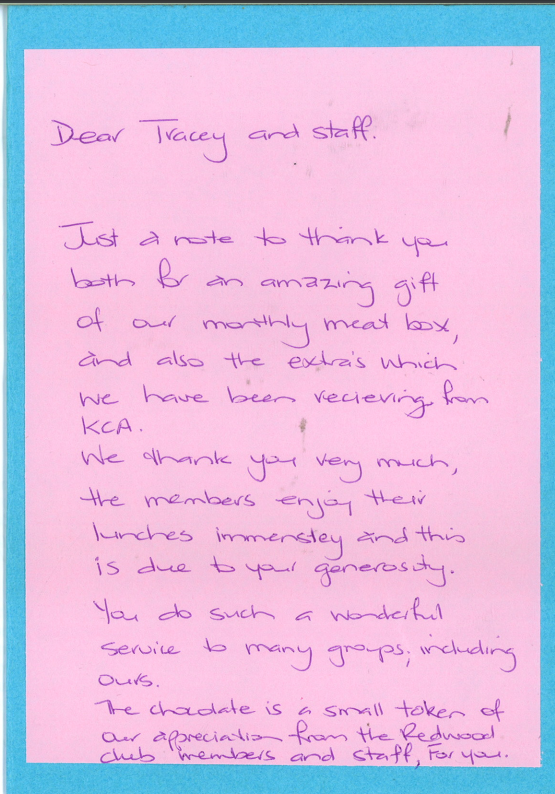 Dear Tracey and staff.
Just a note to thank you
both for an amazing gift
of our monthly meat box,
and also the extra's which
we have been recieving from
KCA.
We thank you very much,
the members enjoy their
lunches immensley and this
is due to your generosity.
You do such a wonderful
service to many groups, including
ours.
The chocolate is a small token of
our appreciation from the Redwood
club members and staff, For you.